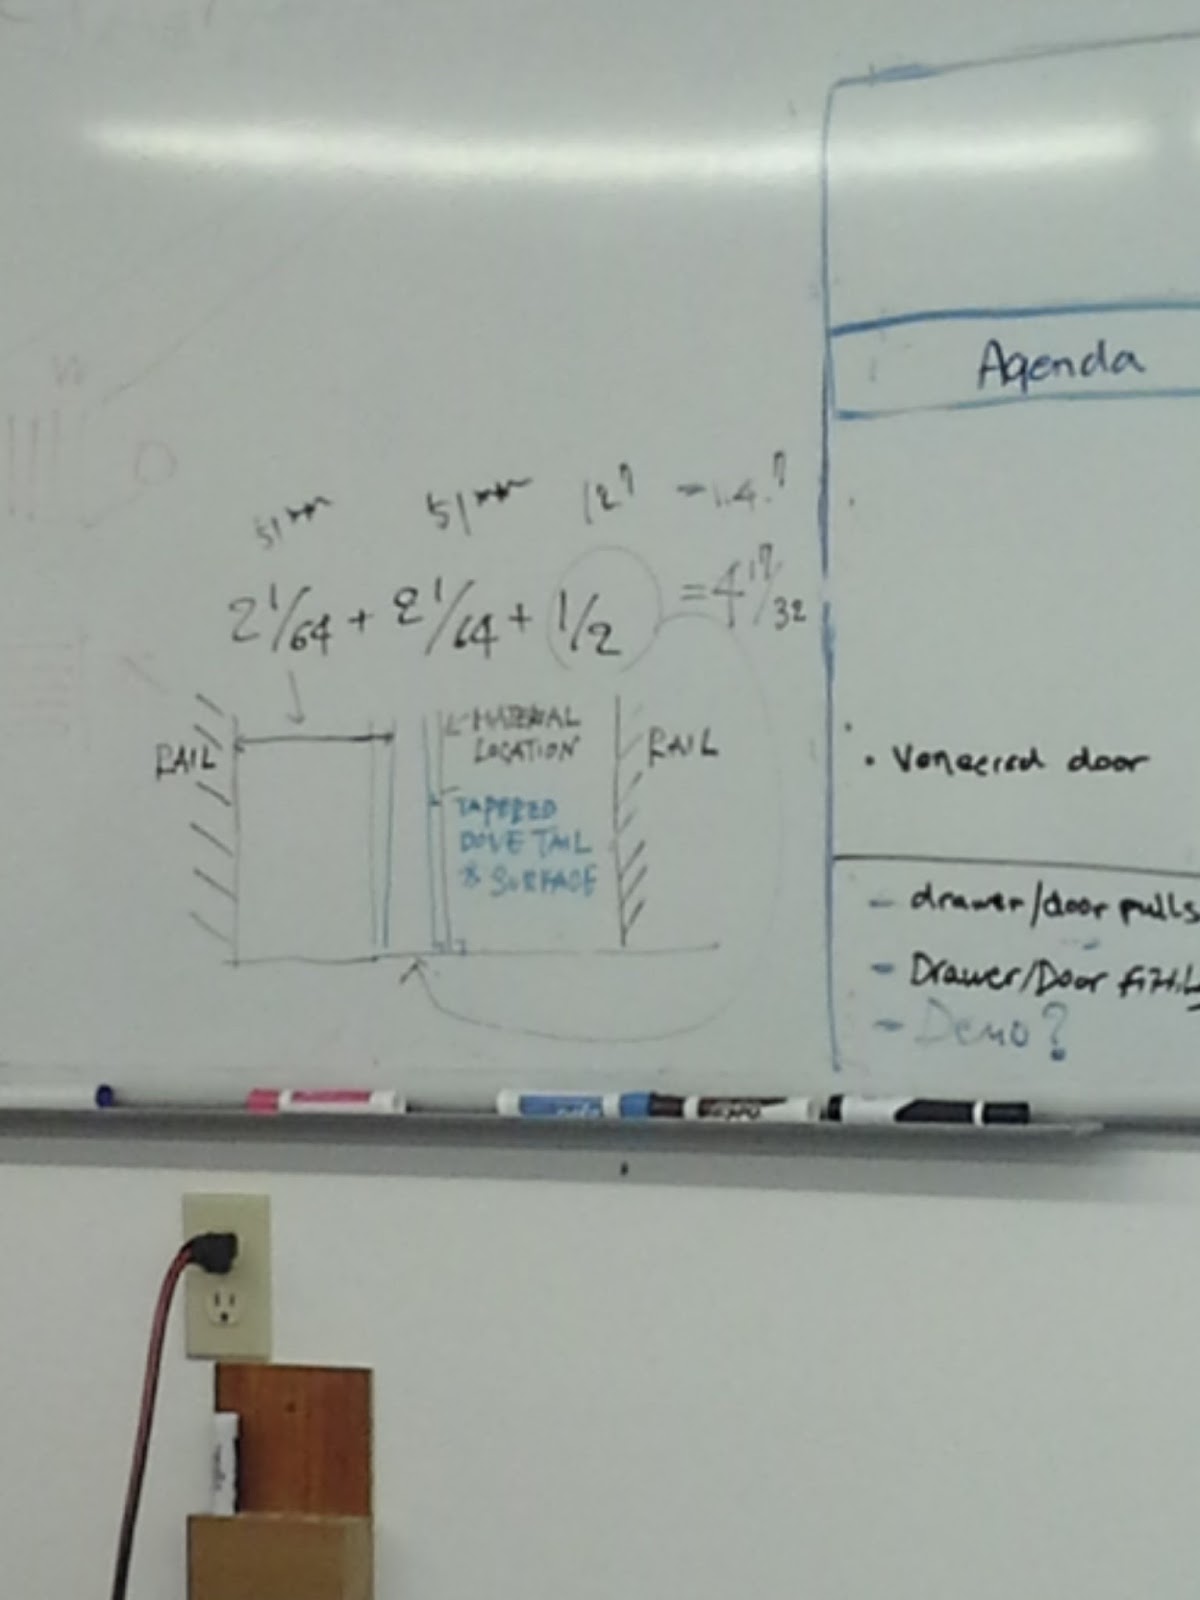 51mm 51mm 12?
2 1/64 + 2 1/64 + 1/2 = 4 17/32
RAIL
MATERIAL
LOCATION
TAPERED
DOVE TAIL
& SURFACE
RAIL
Agenda
• Veneered door
- drawer/door pulls
- Drawer/Door
- Demo?